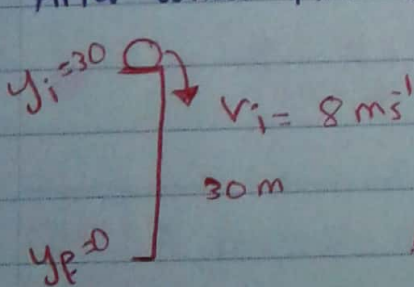 yi=30
Vi = 8 ms⁻¹
30 m
yf=0